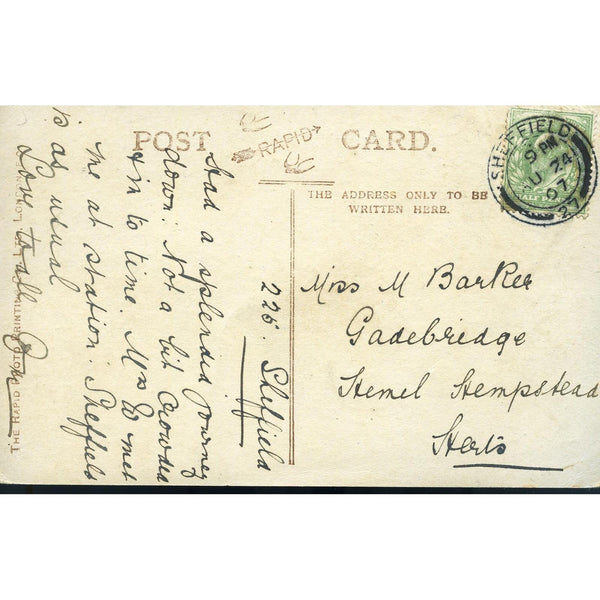 POST CARD.
RAPID
THE ADDRESS ONLY TO BE
WRITTEN HERE.
SHEFFIELD
9 PM
JU 24
07
27
HALF
Miss M Barker
Gadebridge
Hemel Hempstead
Herts
225. Sheffield
Had a splendid journey
down. Not a bit crowded
in to time. Mrs met
me at station. Sheffield
is as usual
Love to all
THE RAPID PHOTO PRINTING CO LTD LONDON